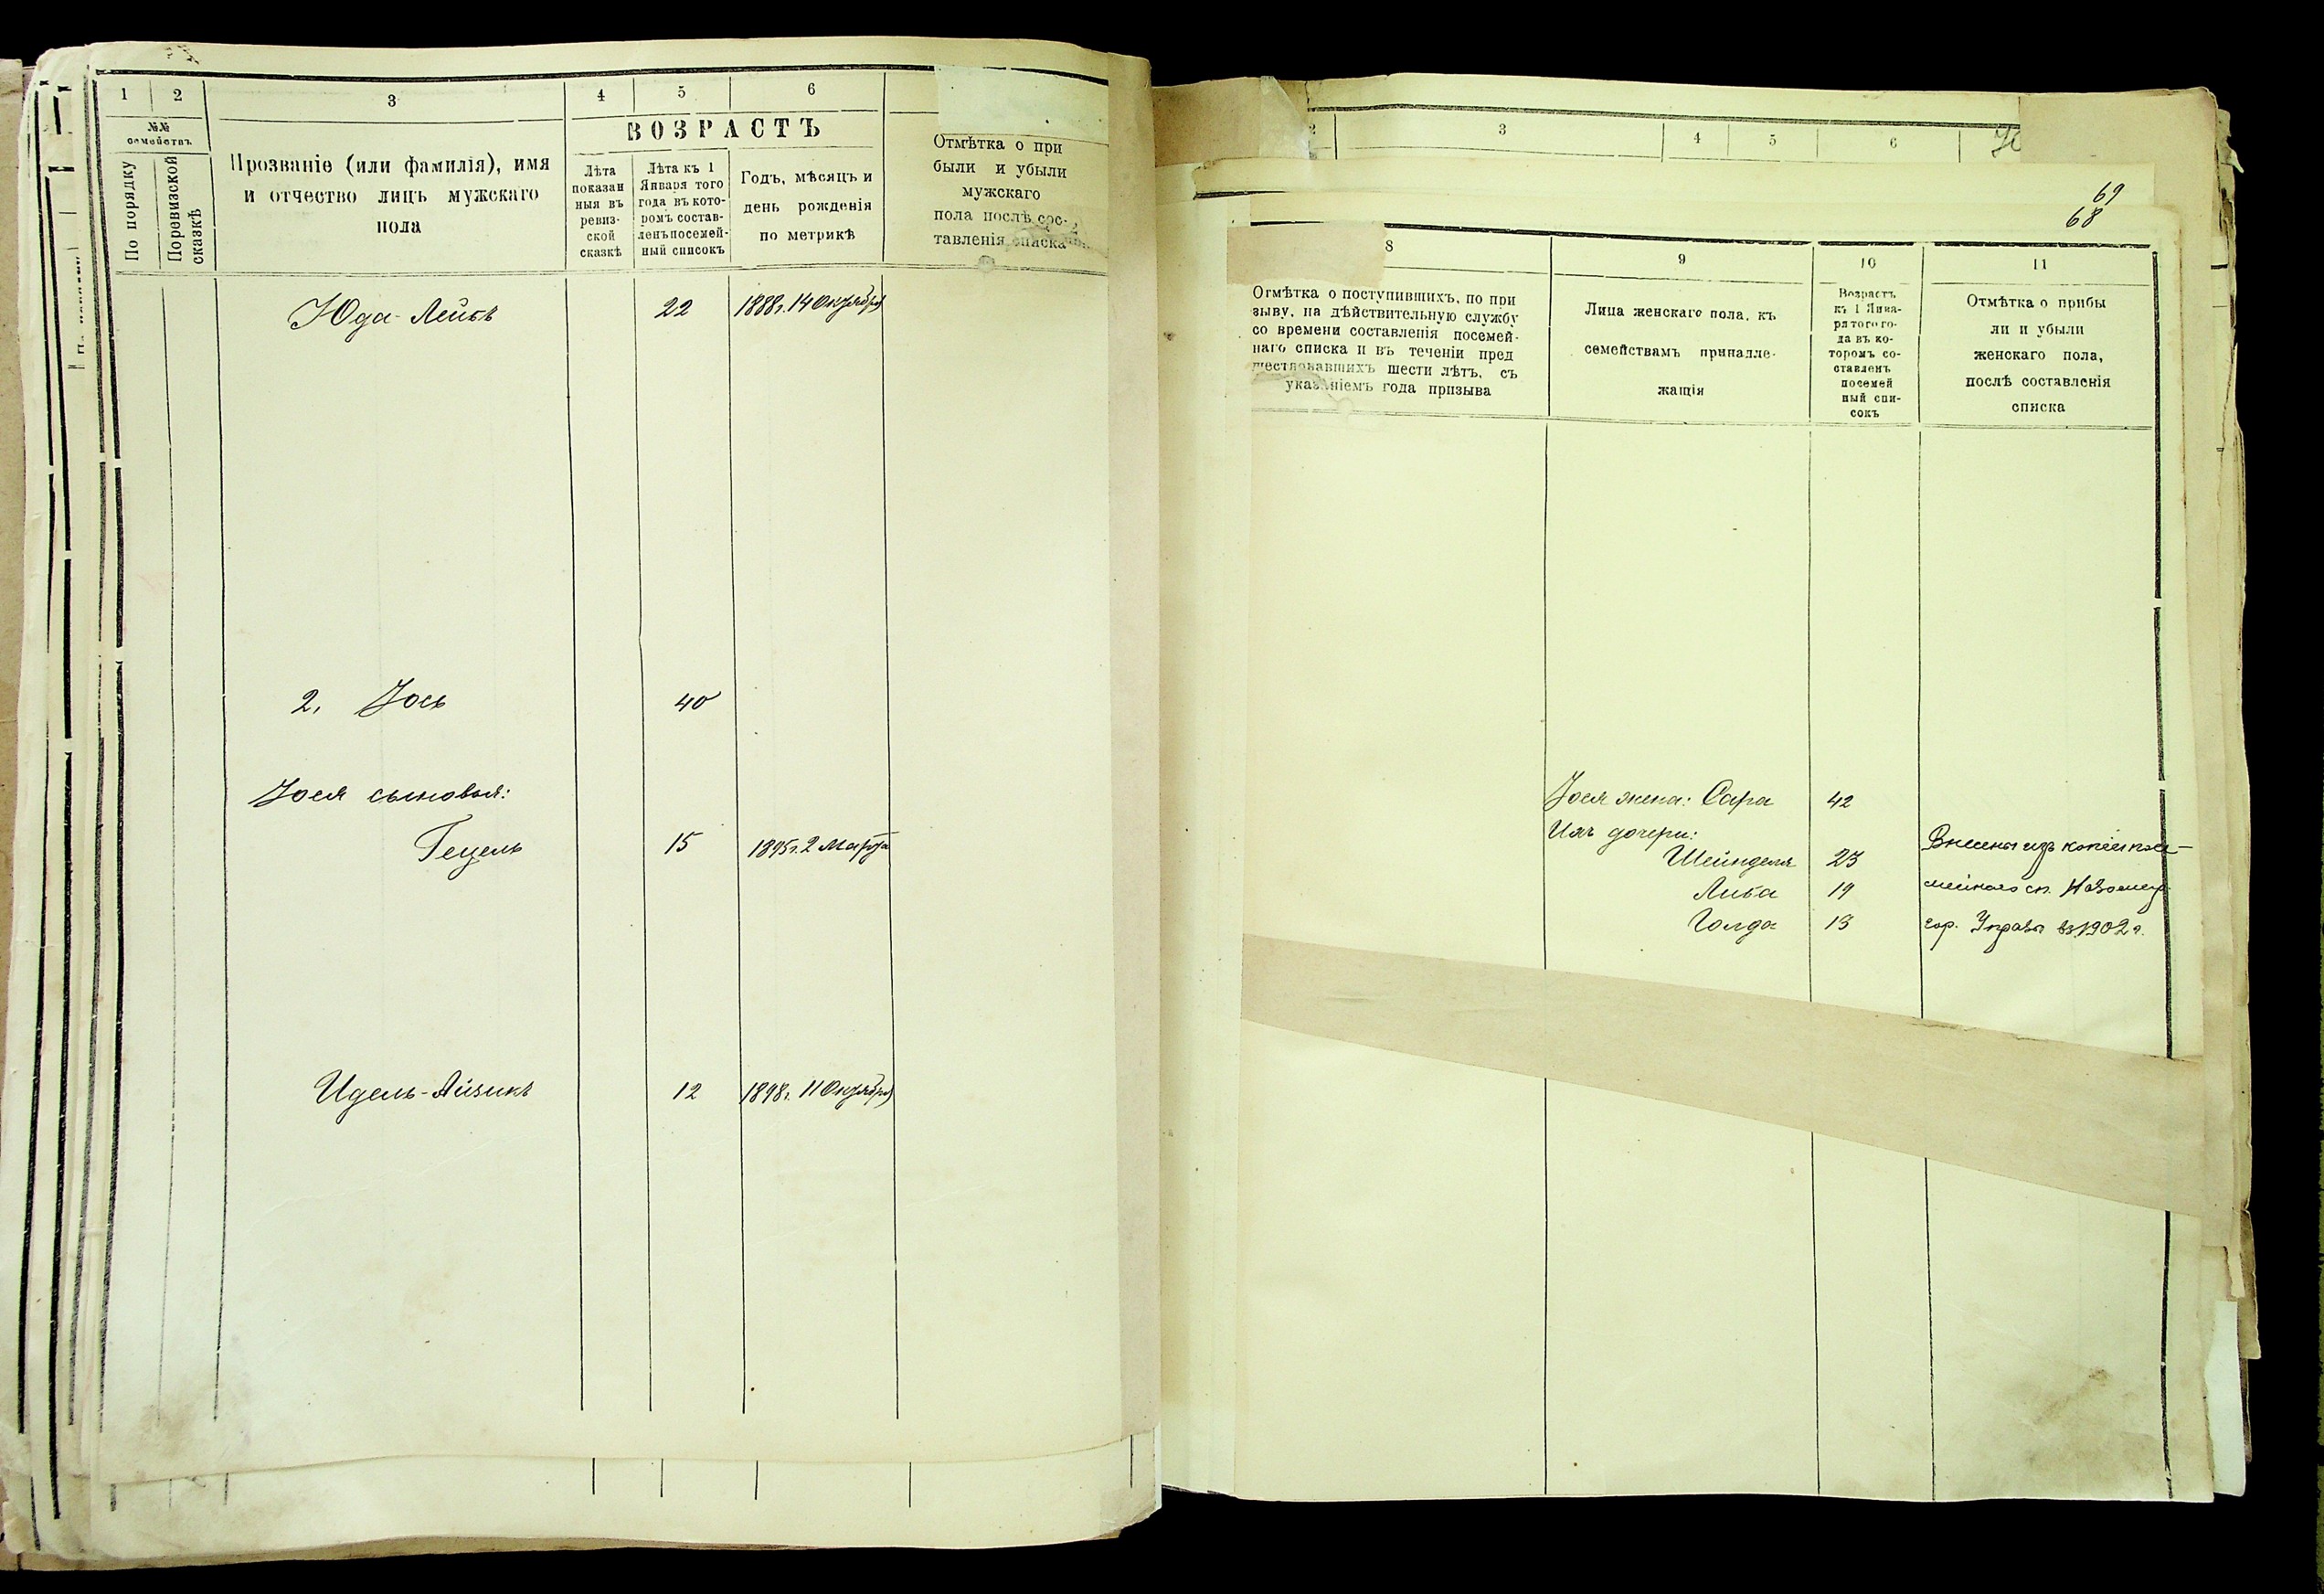 1 2 3 4 5 6
№№ семействъ
По порядку
Поревизской сказкѣ
Прозваніе (или фамилія), имя
и отчество лицъ мужскаго
пола
ВОЗРАСТЪ
Лѣта
показан
ныя въ
ревиз-
ской
сказкѣ
Лѣта къ 1
Января того
года въ кото-
ромъ состав-
ленъ посемей-
ный списокъ
Годъ, мѣсяцъ и
день рожденія
по метрикѣ
Отмѣтка о при
были и убыли
мужскаго
пола послѣ сос-
тавленія списка
Юда-Лейбъ 22 1888г. 14 Октября
2. Іось 40
Іося сыновья:
Гецель 15 1895г. 2 Марта
Идель-Айзикъ 12 1898г. 11 Октября
2 3 4 5 6
69
68
8 9 10 11
Отмѣтка о поступившихъ, по при
зыву, на дѣйствительную службу
со времени составленія посемей-
наго списка и въ теченіи пред
шествовавшихъ шести лѣтъ, съ
указаніемъ года призыва
Лица женскаго пола, къ
семействамъ принадле-
жащія
Возрастъ
къ 1 Янва-
ря того го-
да въ ко-
торомъ со-
ставленъ
посемей
ный спи-
сокъ
Отмѣтка о прибы
ли и убыли
женскаго пола,
послѣ составленія
списка
Іося жена: Сара 42
Ихъ дочери:
Шейндля 23 Внесены изъ копіи посе-
Либа 19 мейнаго сп.
Голда 13 гор. Управы въ 1902 г.